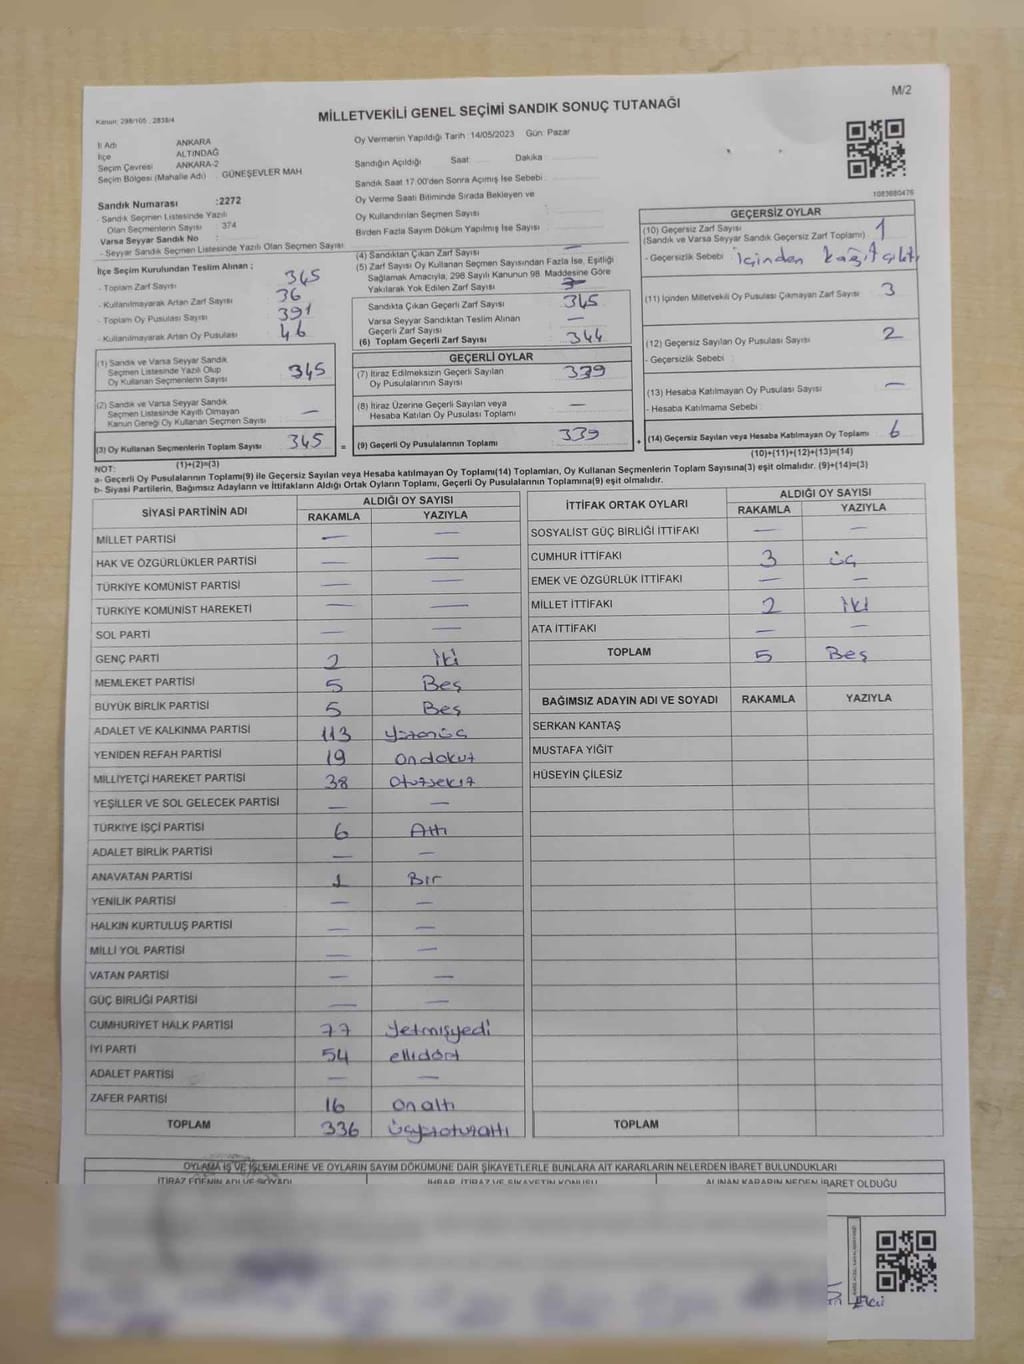 M/2
MİLLETVEKİLİ GENEL SEÇİMİ SANDIK SONUÇ TUTANAĞI
Kanun: 298/105 , 2839/4
İl Adı ANKARA
İlçe ALTINDAĞ
Seçim Çevresi ANKARA-2
Seçim Bölgesi (Mahalle Adı) : GÜNEŞEVLER MAH
Oy Vermenin Yapıldığı Tarih :14/05/2023 Gün: Pazar
Sandığın Açıldığı Saat Dakika
Sandık Saat 17:00'den Sonra Açımış İse Sebebi :
Oy Verme Saati Bitiminde Sırada Bekleyen ve
Oy Kullandırılan Seçmen Sayısı
Birden Fazla Sayım Döküm Yapılmış İse Sayısı :
1083680476
Sandık Numarası :2272
- Sandık Seçmen Listesinde Yazılı
Olan Seçmenlerin Sayısı : 374
Varsa Seyyar Sandık No :
- Seyyar Sandık Seçmen Listesinde Yazılı Olan Seçmen Sayısı:
İlçe Seçim Kurulundan Teslim Alınan ;
- Toplam Zarf Sayısı 345
- Kullanılmayarak Artan Zarf Sayısı 36
- Toplam Oy Pusulası Sayısı 391
- Kullanılmayarak Artan Oy Pusulası 46
(1) Sandık ve Varsa Seyyar Sandık
Seçmen Listesinde Yazılı Olup
Oy Kullanan Seçmenlerin Sayısı 345
(2) Sandık ve Varsa Seyyar Sandık
Seçmen Listesinde Kayıtlı Olmayan
Kanun Gereği Oy Kullanan Seçmen Sayısı —
(3) Oy Kullanan Seçmenlerin Toplam Sayısı 345
(1)+(2)=(3)
(4) Sandıktan Çıkan Zarf Sayısı —
(5) Zarf Sayısı Oy Kullanan Seçmen Sayısından Fazla İse, Eşitliği
Sağlamak Amacıyla, 298 Sayılı Kanunun 98. Maddesine Göre
Yakılarak Yok Edilen Zarf Sayısı
Sandıkta Çıkan Geçerli Zarf Sayısı 345
Varsa Seyyar Sandıktan Teslim Alınan
Geçerli Zarf Sayısı —
(6) Toplam Geçerli Zarf Sayısı 344
GEÇERLİ OYLAR
(7) İtiraz Edilmeksizin Geçerli Sayılan
Oy Pusulalarının Sayısı 339
(8) İtiraz Üzerine Geçerli Sayılan veya
Hesaba Katılan Oy Pusulası Toplamı —
= (9) Geçerli Oy Pusulalarının Toplamı 339
GEÇERSİZ OYLAR
(10) Geçersiz Zarf Sayısı
(Sandık ve Varsa Seyyar Sandık Geçersiz Zarf Toplamı) 1
- Geçersizlik Sebebi : içinden kağıt çıktı
(11) İçinden Milletvekili Oy Pusulası Çıkmayan Zarf Sayısı 3
(12) Geçersiz Sayılan Oy Pusulası Sayısı 2
- Geçersizlik Sebebi :
(13) Hesaba Katılmayan Oy Pusulası Sayısı —
- Hesaba Katılmama Sebebi :
+ (14) Geçersiz Sayılan veya Hesaba Katılmayan Oy Toplamı 6
(10)+(11)+(12)+(13)=(14)
NOT:
a- Geçerli Oy Pusulalarının Toplamı(9) ile Geçersiz Sayılan veya Hesaba katılmayan Oy Toplamı(14) Toplamları, Oy Kullanan Seçmenlerin Toplam Sayısına(3) eşit olmalıdır. (9)+(14)=(3)
b- Siyasi Partilerin, Bağımsız Adayların ve İttifakların Aldığı Ortak Oyların Toplamı, Geçerli Oy Pusulalarının Toplamına(9) eşit olmalıdır.
SİYASİ PARTİNİN ADI ALDIĞI OY SAYISI
RAKAMLA YAZIYLA
MİLLET PARTİSİ — —
HAK VE ÖZGÜRLÜKLER PARTİSİ — —
TÜRKİYE KOMÜNİST PARTİSİ — —
TÜRKİYE KOMÜNİST HAREKETİ — —
SOL PARTİ — —
GENÇ PARTİ 2 iki
MEMLEKET PARTİSİ 5 Beş
BÜYÜK BİRLİK PARTİSİ 5 Beş
ADALET VE KALKINMA PARTİSİ 113 yüzonüç
YENİDEN REFAH PARTİSİ 19 ondokuz
MİLLİYETÇİ HAREKET PARTİSİ 38 otuzsekiz
YEŞİLLER VE SOL GELECEK PARTİSİ — —
TÜRKİYE İŞÇİ PARTİSİ 6 Altı
ADALET BİRLİK PARTİSİ — —
ANAVATAN PARTİSİ 1 Bir
YENİLİK PARTİSİ — —
HALKIN KURTULUŞ PARTİSİ — —
MİLLİ YOL PARTİSİ — —
VATAN PARTİSİ — —
GÜÇ BİRLİĞİ PARTİSİ — —
CUMHURİYET HALK PARTİSİ 77 yetmişyedi
İYİ PARTİ 54 ellidört
ADALET PARTİSİ — —
ZAFER PARTİSİ 16 onaltı
TOPLAM 336 üçyüzotuzaltı
İTTİFAK ORTAK OYLARI ALDIĞI OY SAYISI
RAKAMLA YAZIYLA
SOSYALİST GÜÇ BİRLİĞİ İTTİFAKI — —
CUMHUR İTTİFAKI 3 üç
EMEK VE ÖZGÜRLÜK İTTİFAKI — —
MİLLET İTTİFAKI 2 iki
ATA İTTİFAKI — —
TOPLAM 5 Beş
BAĞIMSIZ ADAYIN ADI VE SOYADI RAKAMLA YAZIYLA
SERKAN KANTAŞ
MUSTAFA YİĞİT
HÜSEYİN ÇİLESİZ
TOPLAM
OYLAMA İŞ VE İŞLEMLERİNE VE OYLARIN SAYIM DÖKÜMÜNE DAİR ŞİKAYETLERLE BUNLARA AİT KARARLARIN NELERDEN İBARET BULUNDUKLARI
İTİRAZ EDENİN ADI VE SOYADI İHBAR, İTİRAZ VE ŞİKAYETİN KONUSU ALINAN KARARIN NEDEN İBARET OLDUĞU